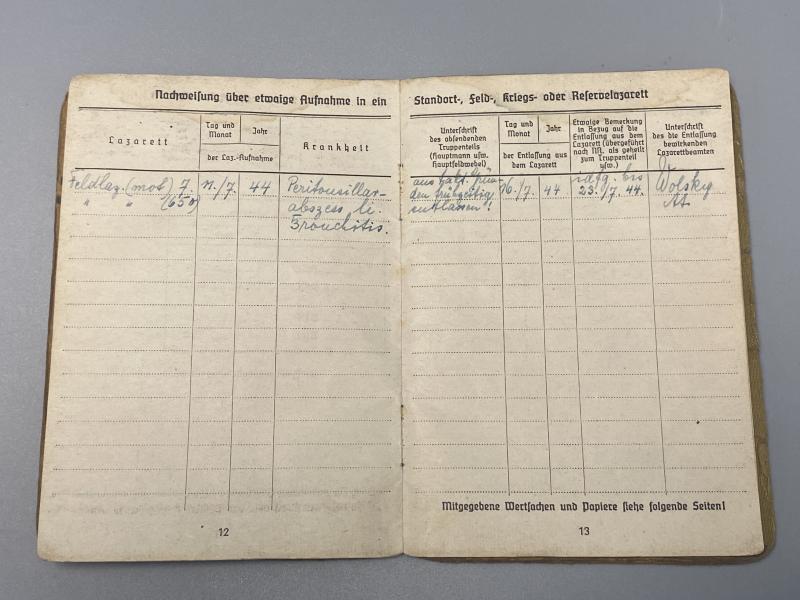 Nachweisung über etwaige Aufnahme in ein
Standort-, Feld-, Kriegs- oder Reservelazarett
Lazarett
Tag und
Monat
Jahr
der Laz.-Aufnahme
Krankheit
Unterschrift
des absendenden
Truppenteils
(Hauptmann usw.
Hauptfeldwebel)
Tag und
Monat
Jahr
der Entlassung aus
dem Lazarett
Etwaige Bemerkung
in Bezug auf die
Entlassung aus dem
Lazarett (übergeführt
nach Nst. als geheilt
zum Truppenteil
usw.)
Unterschrift
des die Entlassung
bewirkenden
Lazarettbeamten
Feldlaz. (mot) 7.
" " (650)
11./7. 44
Peritonsillar-
abszess li.
Bronchitis.
aus takt. Grün-
den frühzeitig
entlassen!
16./7. 44
bis
23./7. 44.
Wolsky
Mitgegebene Wertsachen und Papiere siehe folgende Seiten!
12
13